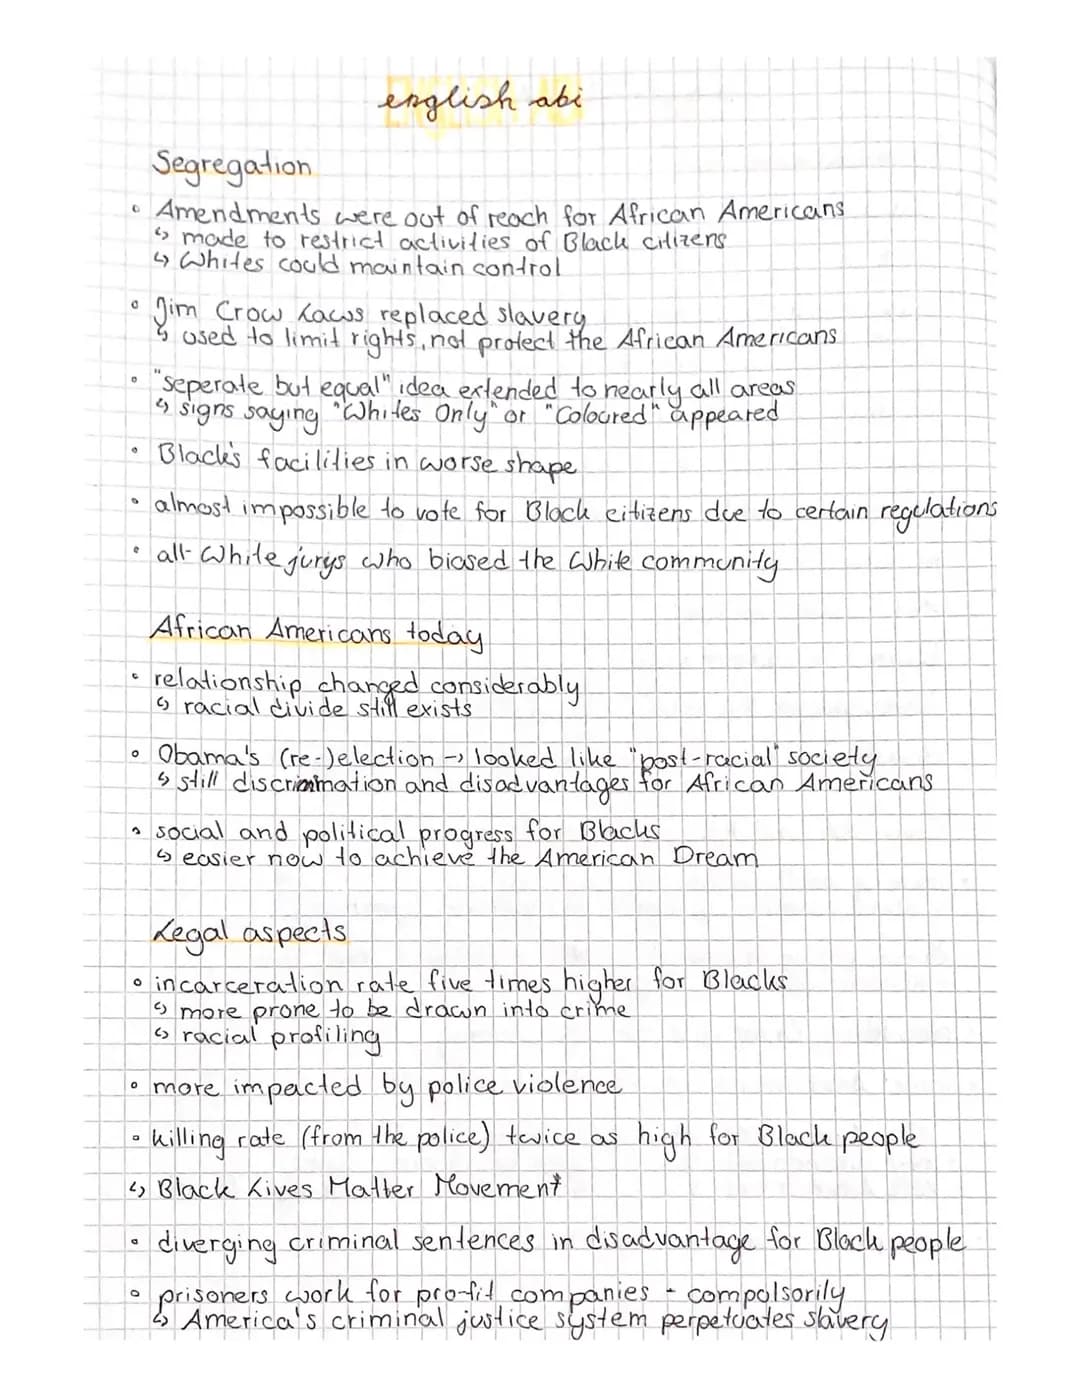 english abi
Segregation
◦ Amendments were out of reach for African Americans
↳ made to restrict activities of Black citizens
↳ Whites could maintain control
◦ Jim Crow Laws replaced slavery
↳ used to limit rights, not protect the African Americans
◦ "seperate but equal" idea extended to nearly all areas
↳ signs saying "Whites Only" or "Coloured" appeared
◦ Black's facilities in worse shape
◦ almost impossible to vote for Black citizens due to certain regulations
◦ all-White jurys who biased the White community
African Americans today
◦ relationship changed considerably
↳ racial divide still exists
◦ Obama's (re-)election → looked like "post-racial" society
↳ still discrimination and disadvantages for African Americans
◦ social and political progress for Blacks
↳ easier now to achieve the American Dream
Legal aspects
◦ incarceration rate five times higher for Blacks
↳ more prone to be drawn into crime
↳ racial profiling
◦ more impacted by police violence
◦ killing rate (from the police) twice as high for Black people
↳ Black Lives Matter Movement
◦ diverging criminal sentences in disadvantage for Black people
◦ prisoners work for pro-fit companies - compolsorily
↳ America's criminal justice system perpetuates slavery